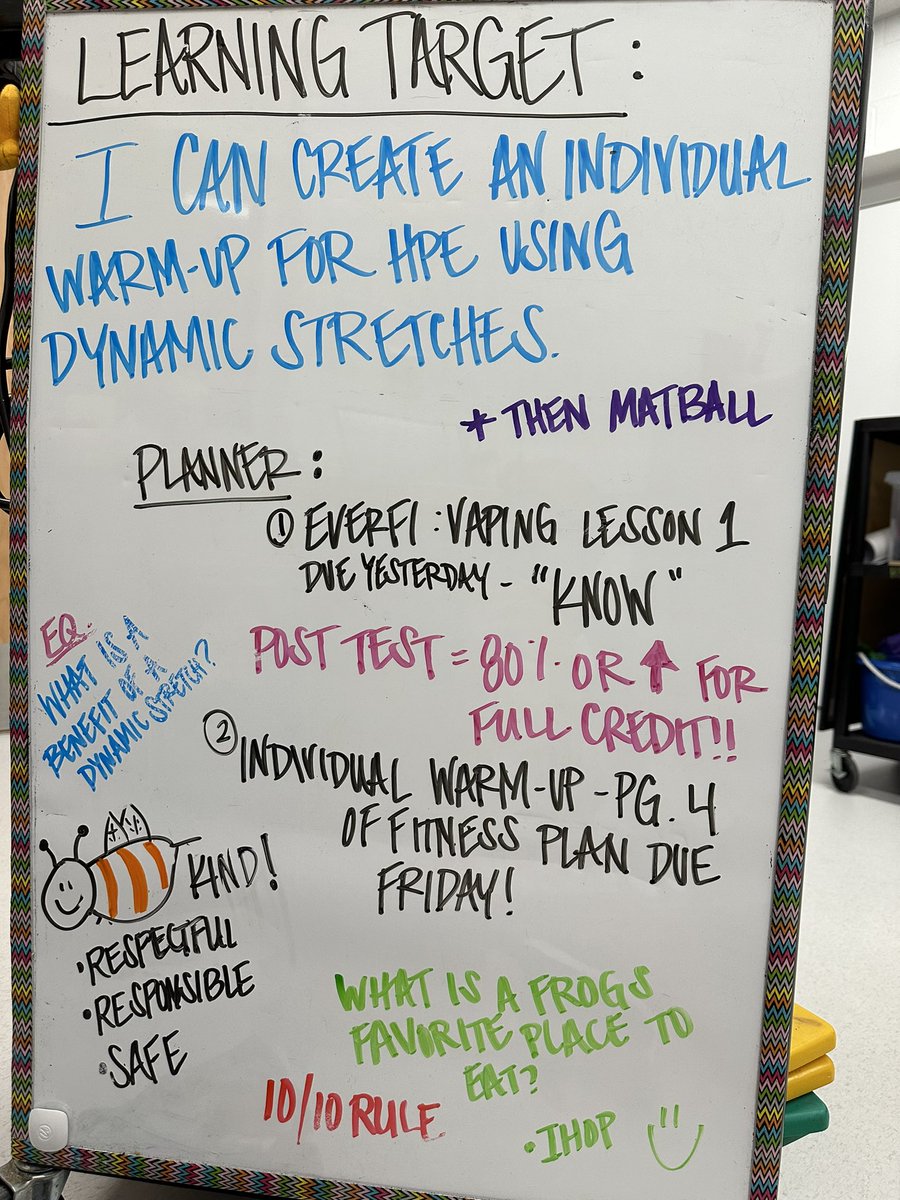 LEARNING TARGET:
I CAN CREATE AN INDIVIDUAL
WARM-UP FOR HPE USING
DYNAMIC STRETCHES.
* THEN MATBALL
PLANNER:
① EVERFI: VAPING LESSON 1
DUE YESTERDAY - "KNOW"
POST TEST = 80% OR ↑ FOR
FULL CREDIT!!
EQ:
WHAT IS A
BENEFIT OF A
DYNAMIC STRETCH?
② INDIVIDUAL WARM-UP - PG. 4
OF FITNESS PLAN DUE
FRIDAY!
KIND!
• RESPECTFUL
• RESPONSIBLE
• SAFE
WHAT IS A FROGS
FAVORITE PLACE TO
EAT?
• IHOP
10/10 RULE